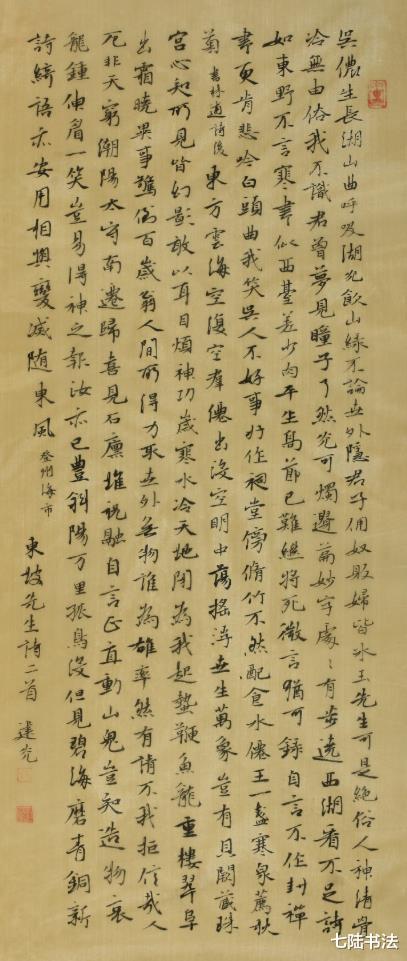 吳儂生長湖山曲呼吸湖光飲山緑不論世外隱君子佣奴販婦皆冰玉先生可是絕俗人神清骨
冷無由俗我不識君曾夢見瞳子了然光可燭遺篇妙字處〻有步遶西湖看不足詩
如東野不言寒書似西臺差少肉平生高節已難繼將死微言猶可録自言不作封禪
書更肯悲吟白頭曲我笑吳人不好事好作祠堂傍脩竹不然配食水僊王一盞寒泉薦秋
菊 書林逋詩後 東方雲海空復空羣僊出沒空明中蕩搖浮世生萬象豈有貝闕藏珠
宮心知所見皆幻影敢以耳目煩神功歲寒水冷天地閉為我起蟄鞭魚龍重樓翠阜
出霜曉異事驚倒百歲翁人間所得力取世外無物誰為雄率然有請不我拒信我人
厄非天窮潮陽太守南遷歸喜見石廩堆祝融自言正直動山鬼豈知造物哀
龍鍾伸眉一笑豈易得神之報汝亦已豐斜陽万里孤鳥沒但見碧海磨青銅新
詩綺語亦安用相與變滅随東風 登州海市 東坡先生詩二首 建光
七陆书法